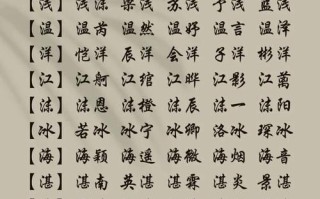 【浅】浅沫 梁浅 苏浅 予浅 蓝浅
【温】温芮 温然 温妤 温言 温泽
【洋】恺洋 辰洋 会洋 子洋 彬洋
【江】江舸 江绾 江晔 江影 江蓠
【沫】沫恩 沫橙 沫辰 沫一 沫阳
【冰】若冰 冰宁 冰卿 洛冰 琛冰
【海】海颖 海遥 海微 海烟 海音
【湛】湛南 英湛 湛霖 湛炎 景湛